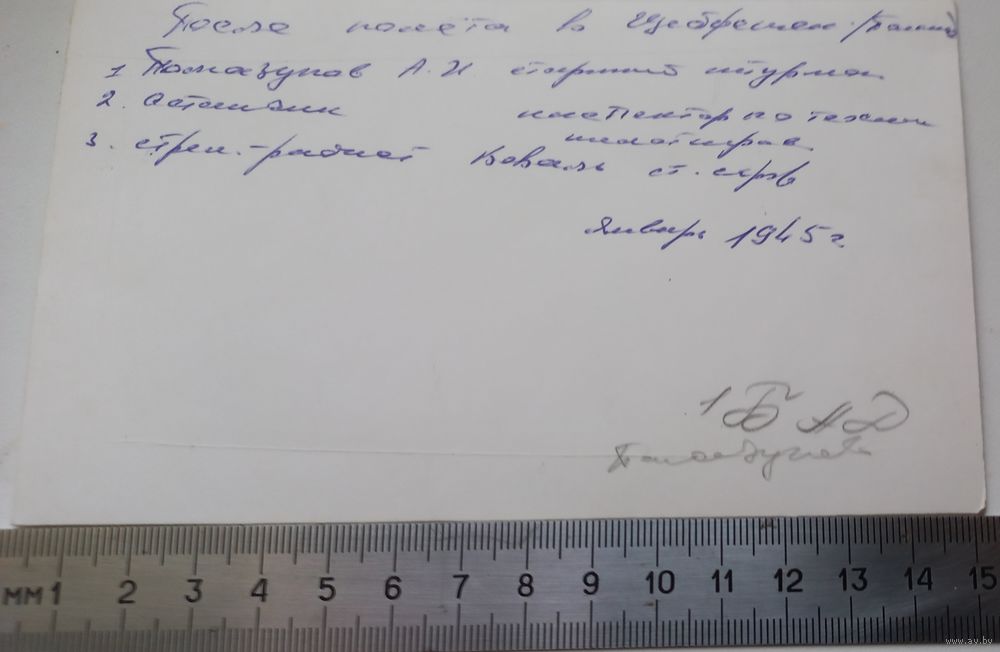 После полёта в Щебрешен /Польша
1 Помазунов А.И старший штурман
2. Осташкин инспектор по технике
пилотиров.
3. стрел.-радист Коваль ст. серж
Январь 1945 г.
1 БАД
Помазунов
мм 1 2 3 4 5 6 7 8 9 10 11 12 13 14 15
www.av.by